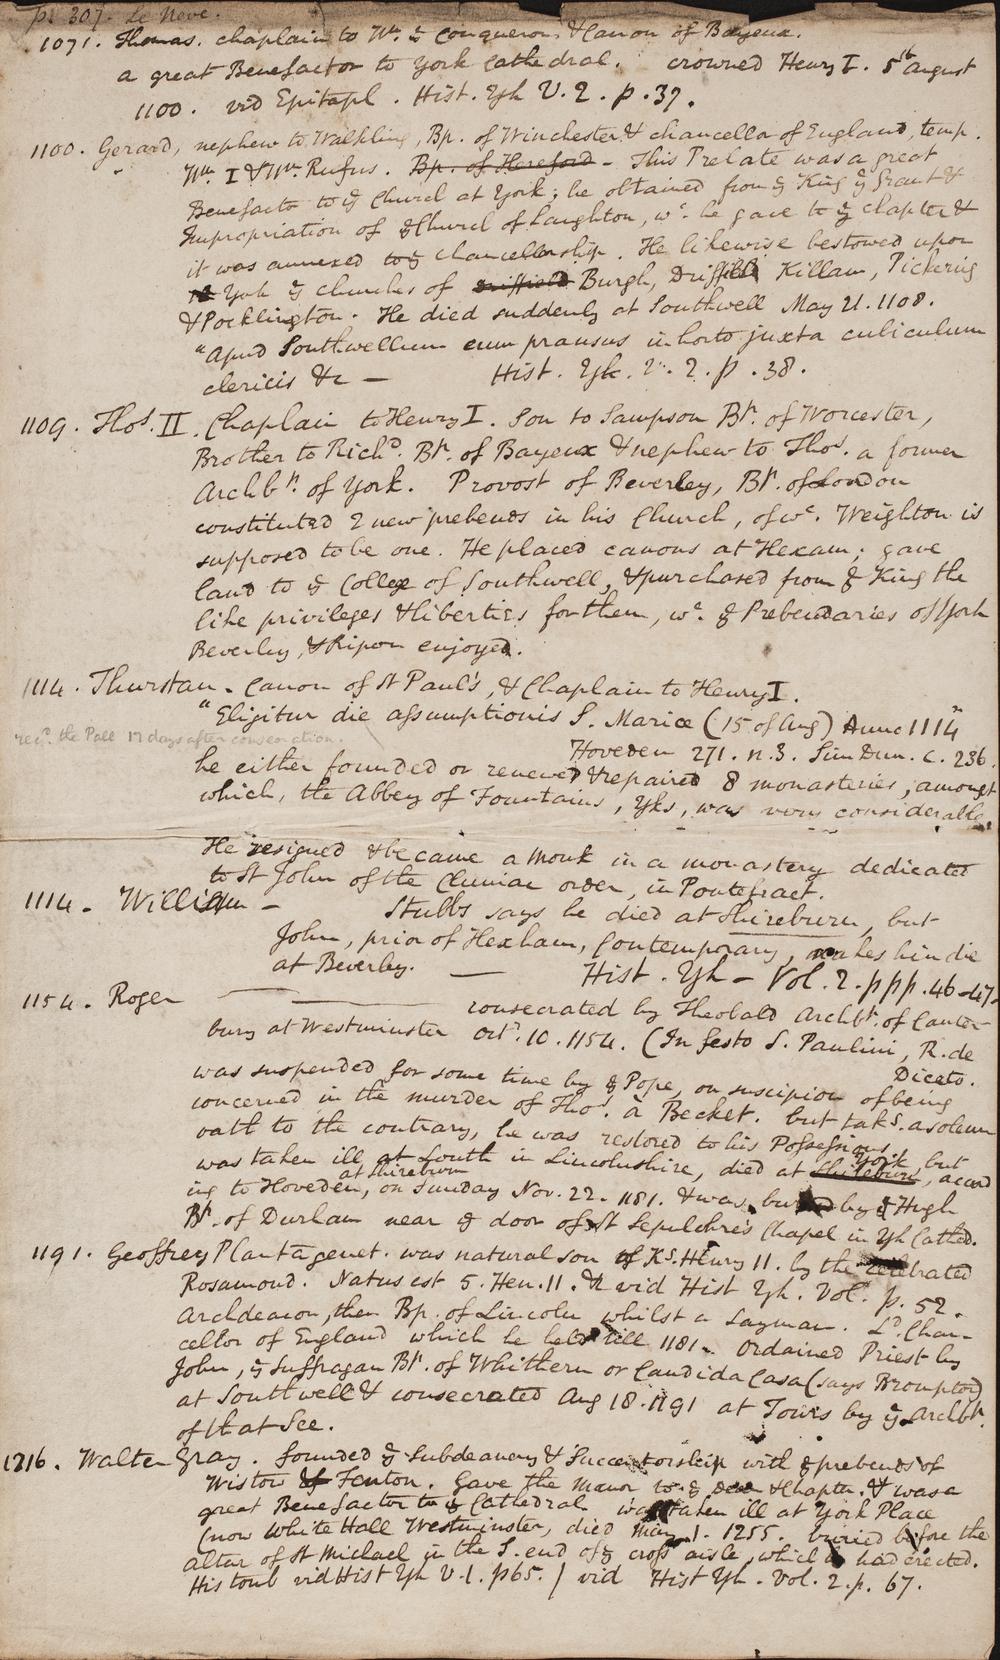 p. 307. Le Neve.
1071. Thomas. chaplain to Wm. ye Conqueror, & Canon of Bayeux.
a great Benefactor to York Cathedral. crowned Henry I. 5th August
1100. vid Epitapl. Hist. Yk V. 2. p. 37.
1100. Gerard, nephew to Walkling, Bp. of Winchester & chancellor of England, temp.
Wm. I & Wm. Rufus. Bp. of Hereford - This Prelate was a great
Benefactor to ye Church at York; he obtained from ye King ye Grant &
Impropriation of ye Church of Laughton, wc. he gave to ye chapter &
it was annexed to ye chancellorship. He likewise bestowed upon
York ye churches of Driffield Burgh, Driffield Killam, Pickering
& Pocklington. He died suddenly at Southwell May 21. 1108.
"Apud Southwellum cum pransus in horto juxta cubiculum
clericis &c — Hist. Yk. V. 2. p. 38.
1109. Thos. II. Chaplain to Henry I. Son to Sampson Bp. of Worcester,
Brother to Richd. Bp. of Bayeux & nephew to Thos. a former
Archbp. of York. Provost of Beverley, Bp. of London
constituted 2 new prebends in his Church, of wc. Weighton is
supposed to be one. He placed canons at Hexam; gave
land to ye College of Southwell, & purchased from ye King the
like privileges & liberties for them, wc. ye Prebendaries of York
Beverley, & Ripon enjoyed.
1114. Thurstan. Canon of St Paul's, & Chaplain to Henry I.
"Eligitur die assumptionis S. Mariæ (15 of Aug) Anno 1114"
recd. the Pall 17 days after consecration.
Hoveden 271. n. 3. Sim Dun. c. 236.
he either founded or renewed & repaired 8 monasteries, amongst
which, the Abbey of Fountains, Yks, was very considerable.
He resigned & became a Monk in a monastery dedicated
to St John of the Cluniac order, in Pontefract.
1114. William - Stubbs says he died at Shireburn, but
John, prior of Hexham, Contemporary, makes him die
at Beverley. — Hist. Yk - Vol. 2. ppp. 46-47-
1154. Roger — consecrated by Theobald Archbp. of Canter
bury at Westminster Octr. 10. 1154. (In festo S. Paulini, R. de
Diceto.
was suspended for some time by ye Pope, on suscipion of being
concerned in the murder of Thos. à Becket. but takg. a solemn
oath to the contrary, he was restored to his Possessions
was taken ill at Louth in Lincolnshire, died at Shireburn York, but
at Shireburn
ing to Hoveden, on Sunday Nov. 22. 1181. & was buried by Hugh
Bp. of Durham near ye door of St Sepulchre's Chapel in Yk Cathed.
1191. Geoffrey Plantagenet. was natural son of Kg. Henry 11. by the celebrated
Rosamond. Natus est 5. Hen. 11. & vid Hist Yk. Vol. p. 52.
Archdeacon, then Bp. of Lincoln whilst a Layman. Ld. Chan-
cellor of England which he held till 1181. Ordained Priest by
John, ye Suffragan Bp. of Whithern or Candida Casa (says Brompton)
at Southwell & consecrated Aug 18. 1191 at Tours by ye Archbp.
of that See.
1216. Walter Gray. founded ye Subdeanery & Succentorship with ye prebends of
Wistow & Fenton. Gave the Manor to ye & Chaptr. & was a
great Benefactor to ye Cathedral was taken ill at York Place
(now White Hall Westminster, died May 1. 1255. buried before the
altar of St Michael in the S. end of ye cross aisle, which he had erected.
His tomb vid Hist Yk V. 1. p 65. / vid Hist Yk. Vol. 2. p. 67.